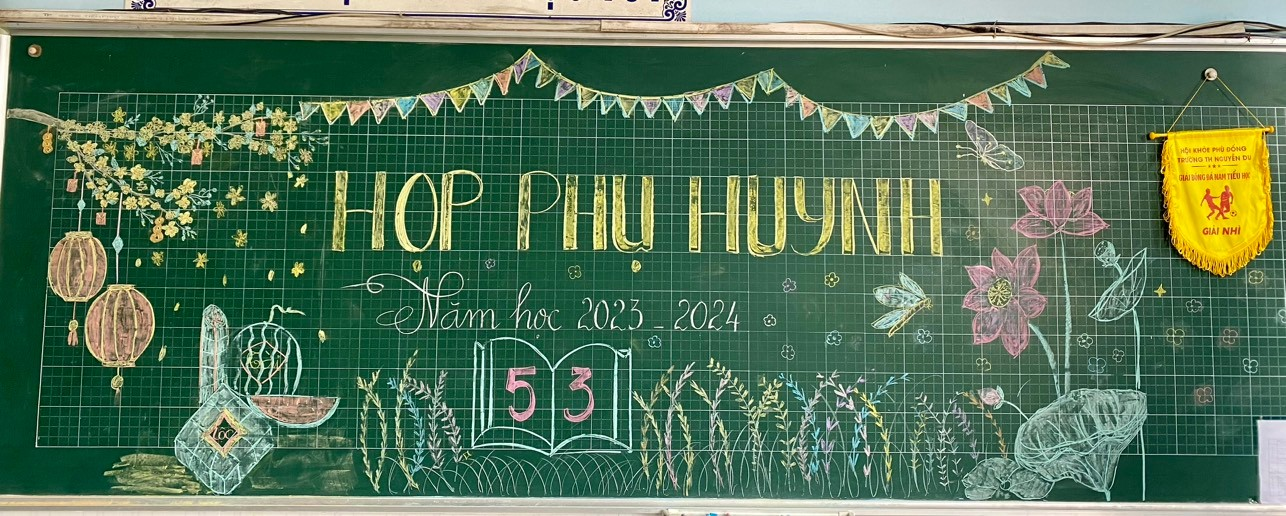 HỌP PHỤ HUYNH
Năm học 2023 - 2024
5 3
Lộc
HỘI KHỎE PHÙ ĐỔNG
TRƯỜNG TH NGUYỄN DU
GIẢI BÓNG ĐÁ NAM TIỂU HỌC
GIẢI NHÌ